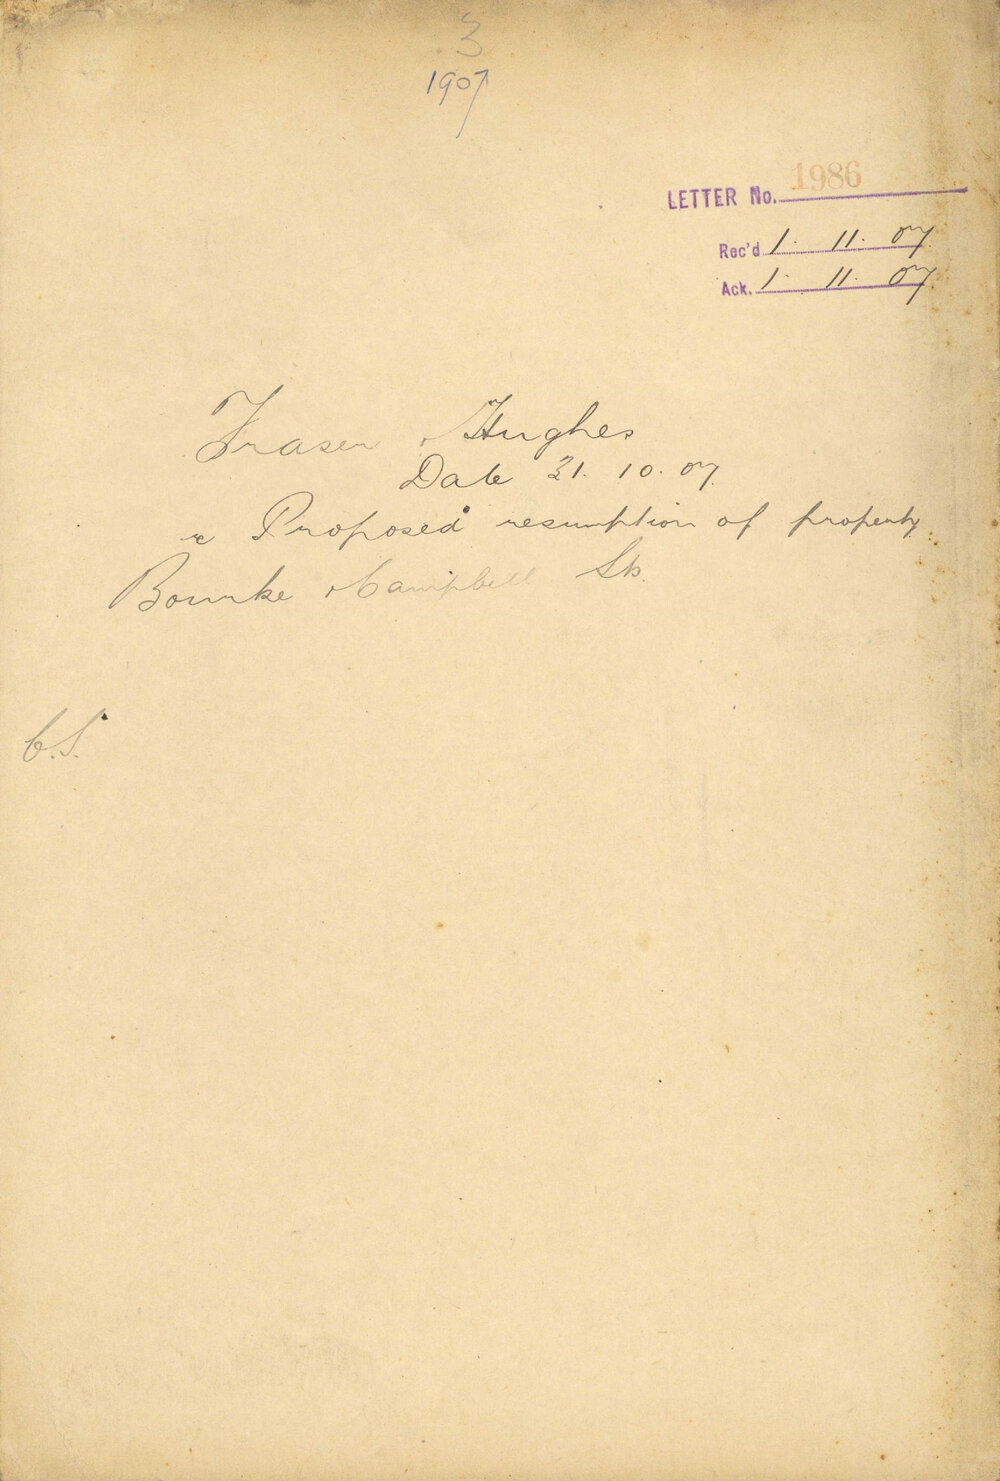 3
1907
LETTER No. 1986
Rec'd 1. 11. 07.
Ack. 1. 11. 07.
Fraser Hughes
Date 31. 10. 07.
re Proposed resumption of property
Bourke & Campbell Sts.
C.S.